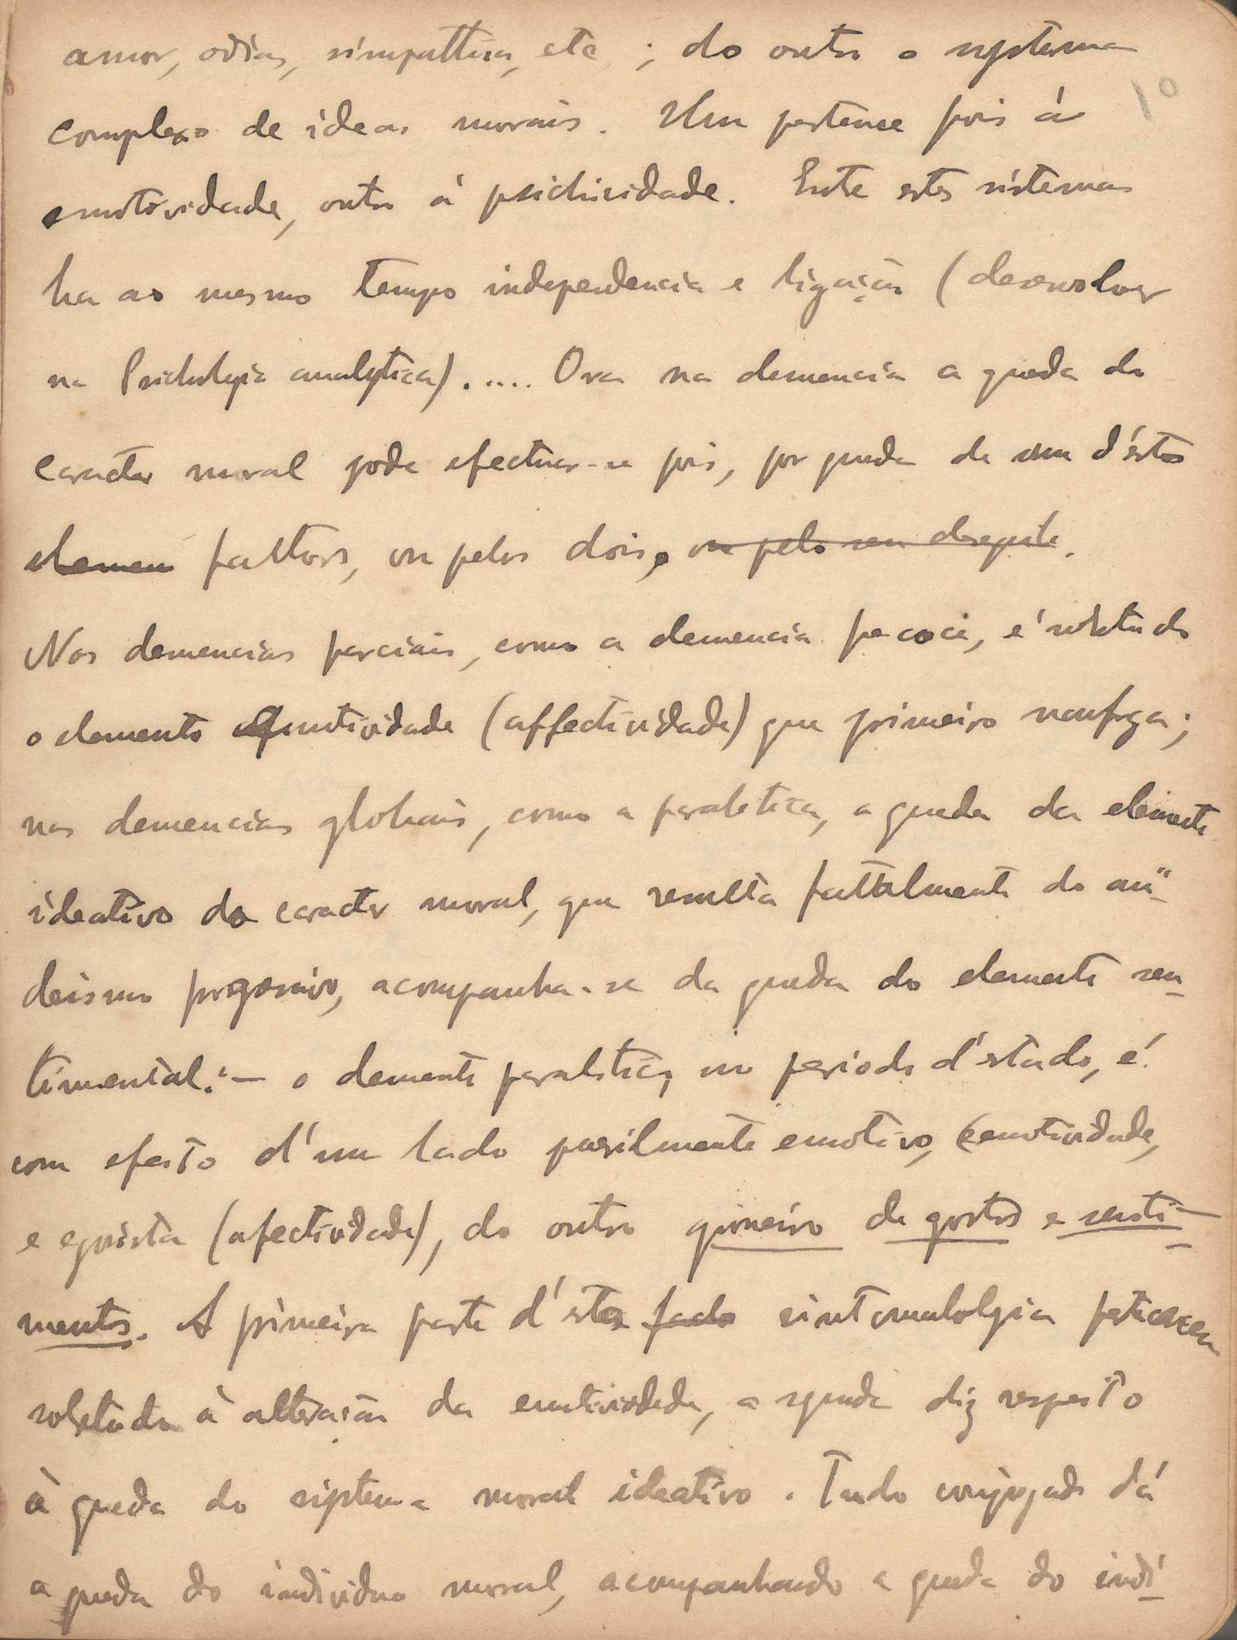 amor, odios, simpathia, etc ; do outro o systema
10
complexo de ideas morais. Um pertence pois á
emotividade, outro á psichicidade. Entre estes sistemas
ha ao mesmo tempo independencia e ligação (desenvolver
na Psichologia analytica)..... Ora na demencia a queda do
caracter moral pode efectuar-se pois, por queda de um d'éstes
elemen factores, ou pelos dois, ou pelo seu
Nas demencias parciais, como a demencia precoce, é sobretudo
o elemento emotividade (affectividade) que primeiro naufraga;
nas demencias globais, como a paralitica, a queda do elemento
ideativo do caracter moral, que resulta fatalmente do
progressivo, acompanha-se da queda do elemento sen-
timental:— o demente paralitico, no periodo d'estado, é
com efeito d'um lado puerilmente emotivo, (emotividade,
e egoista (afectividade), do outro grosseiro de gostos e senti-
mentos. A primeira parte d'esta sintomatologia pertence
sobretudo á alteração da emotividade, a segunda diz respeito
à queda do systema moral ideativo. Tudo conjugado dá
a queda do individuo moral, acompanhando a queda do indi-